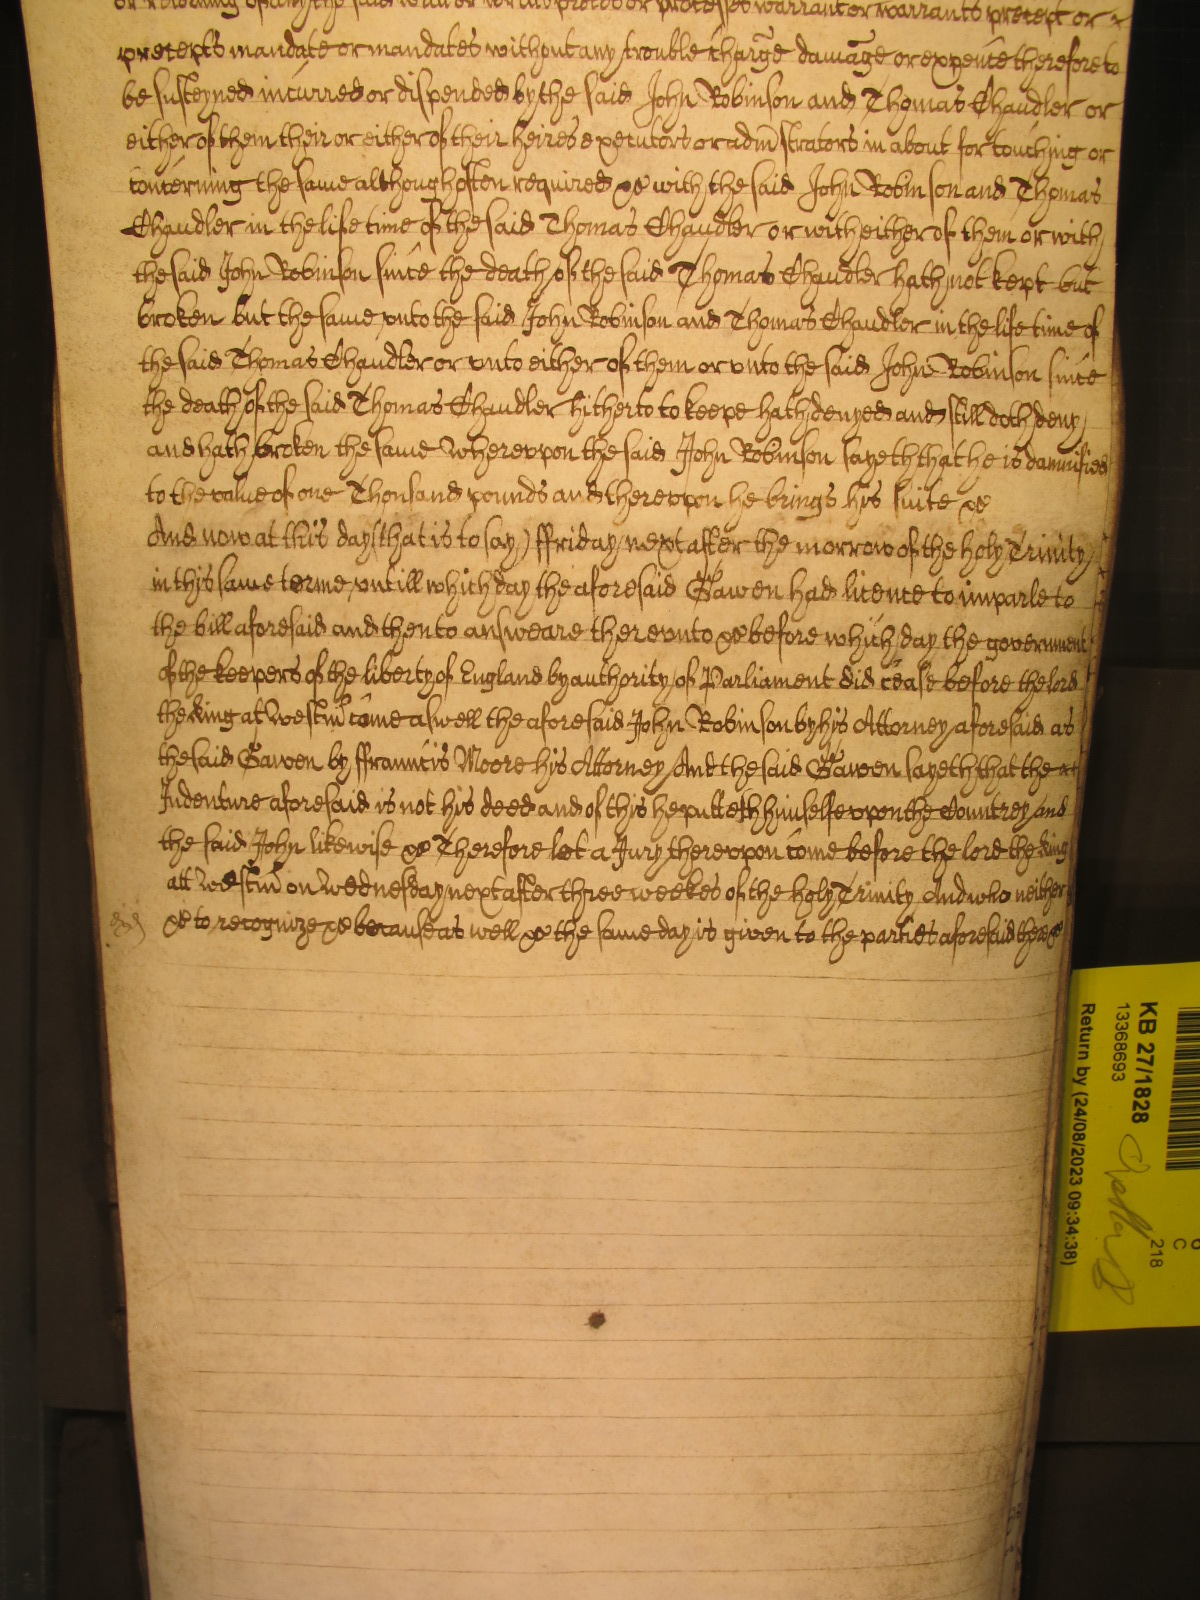 or returning of any the said writt or writts process or processes warrant or warrants precept or
precepts mandate or mandates without any trouble charge damage or expence therefore to
be susteyned incurred or dispended by the said John Robinson and Thomas Chaudler or
either of them their or either of their heires executors or admstrators in about for touching or
concerning the same although often required xc with the said John Robinson and Thomas
Chaudler in the life time of the said Thomas Chaudler or with either of them or with
the said John Robinson since the death of the said Thomas Chaudler hath not kept but
broken but the same vnto the said John Robinson and Thomas Chaudler in the life time of
the said Thomas Chaudler or vnto either of them or vnto the said John Robinson since
the death of the said Thomas Chaudler hitherto to keepe hath denyed and still doth deny
and hath broken the same Wherevpon the said John Robinson sayeth that he is damnified
to the value of one Thousand pounds and therevpon he brings his suite xc
And now at this day (that is to say) ffriday next after the morrow of the holy Trinity
in this same terme vntill which day the aforesaid Gawen had licence to imparle to
the bill aforesaid and then to answeare therevnto xc before which day the government
of the keepers of the liberty of England by authority of Parliament did cease before the lord
the King at Westm come aswell the aforesaid John Robinson by his Attorney aforesaid as
the said Gawen by ffranncis Moore his Attorney And the said Gawen sayeth that the
Indenture aforesaid is not his deed and of this he putteth himselfe vpon the Countrey and
the said John likewise xc Therefore let a Jury therevpon come before the lord the King
att Westm on Wednesday next after three weekes of the holy Trinity And who neither
xc to recognize xc because as well xc the same day is given to the parties aforesaid there xc
KB 27/1828
13368693
Return by (24/08/2023 09:34:38)
218
C